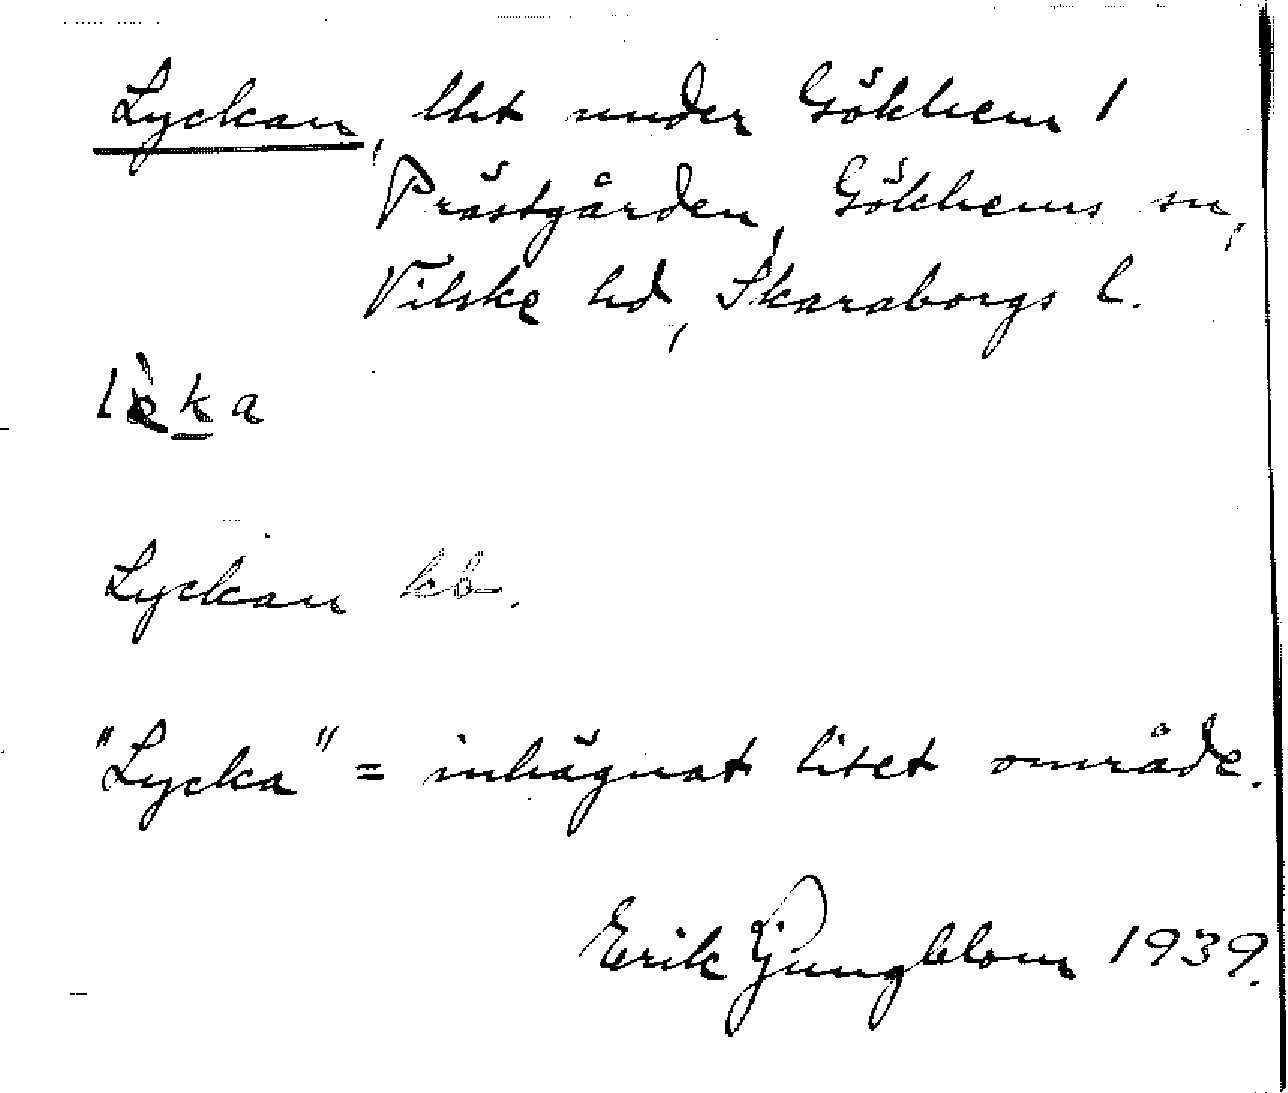 Lyckan, lht under Gökhem 1
Prästgården, Gökhems sn,
Vilske hd, Skaraborgs l.
lèka
Lyckan kb.
"Lycka" = inhägnat litet område.
Erik Ljungblom 1939.